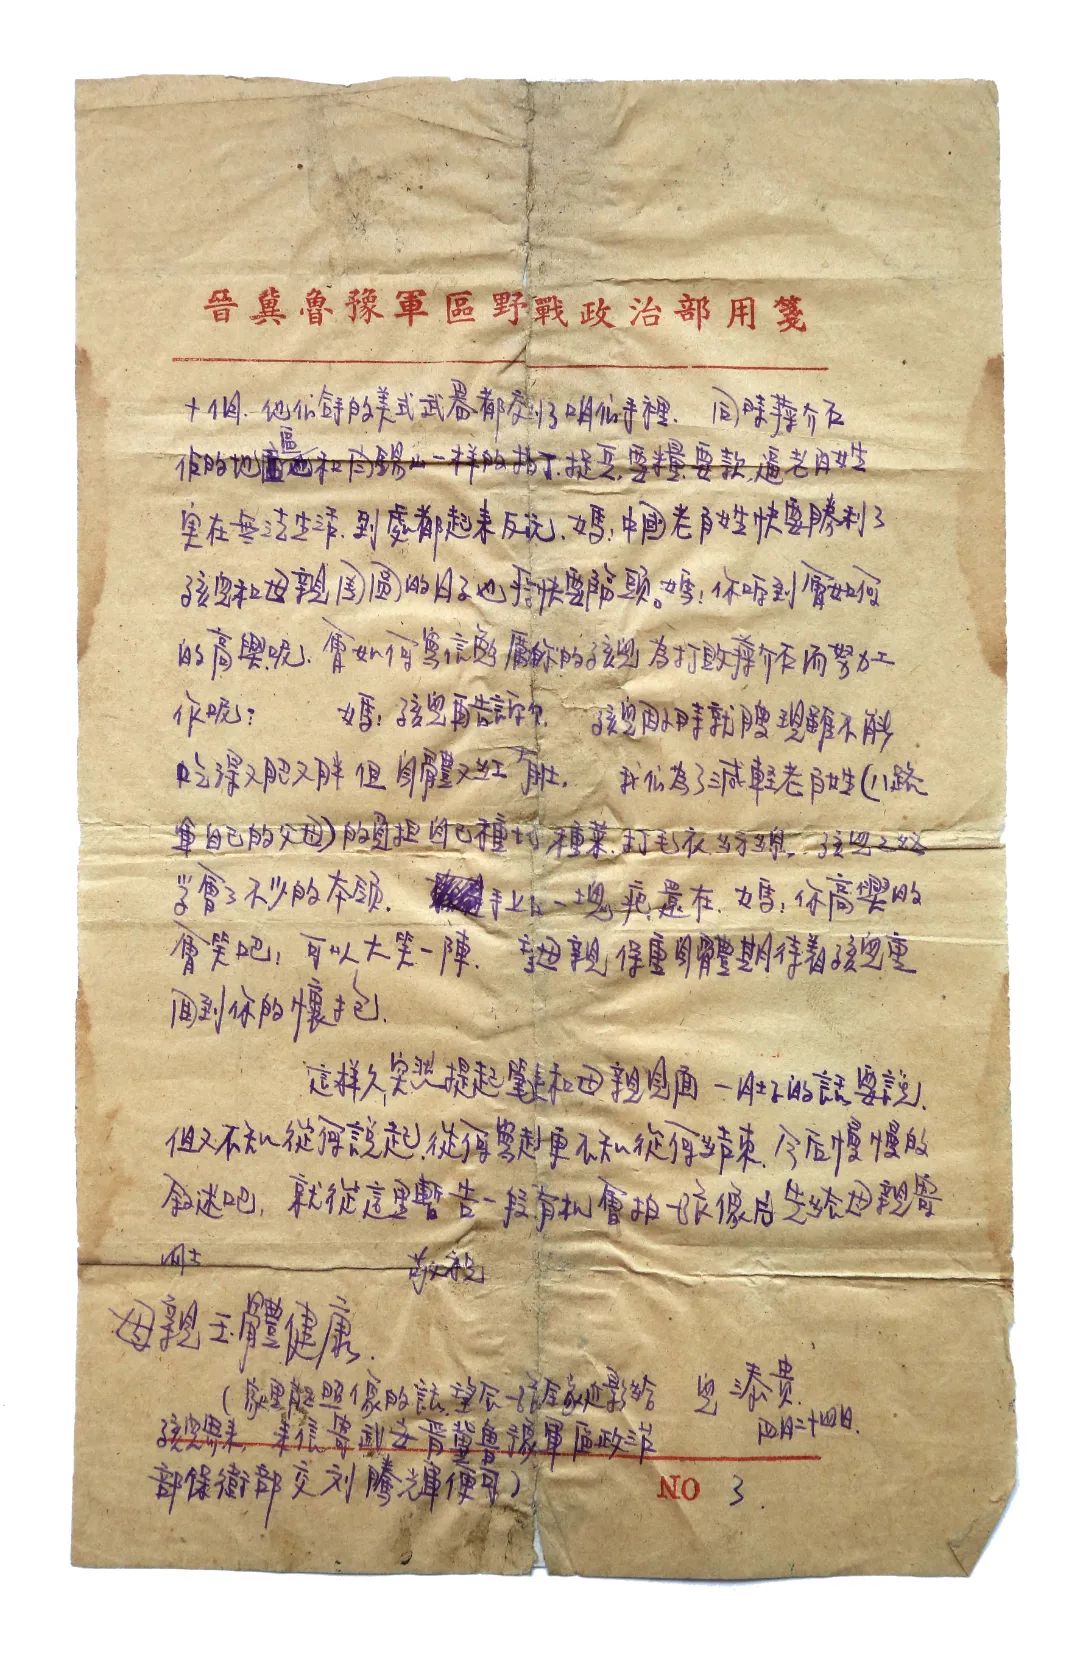 晉冀魯豫軍區野戰政治部用箋
十個. 他们拿的美式武器都交到了咱们手裡. 同時蔣介石
佔的地區也和閻錫山一样的抽丁.捉兵.要糧.要款.逼老百姓
實在無法生活.到處都起來反抗.媽!中國老百姓快要勝利了
孩兒和母親團圓的日子也快要臨頭。媽!你听到會如何
的高興呢.會如何寫信勉勵你的孩兒為打敗蔣介石而努力工
作呢? 媽!孩兒再告訴你. 孩兒因小時就瘦現雖不能
吃得又肥又胖但身體又紅又壯. 我们為了減輕老百姓(八路
軍自己的父母)的負担自己種地.種菜.打毛衣紡線。孩兒
學會了不少的本領. 手上的一塊疤還在.媽!你高興的
會笑吧!可以大笑一陣. 母親保重身體期待着孩兒重
回到你的懷抱.
這样久突然提起筆來和母親見面一肚子的話要說.
但又不知從何說起.從何寫起更不知從何結束.今后慢慢的
叙述吧!就從這里暫告一段有机會拍一張像后先給母親寄
敬祝
母親玉體健康.
(家里能照像的話.望合一張全家近影給 兒 泰貴.
孩兒寄來.來信寄武安晉冀魯豫軍區政治 四月二十四日.
部保衛部交刘騰輝便可)
NO 3.